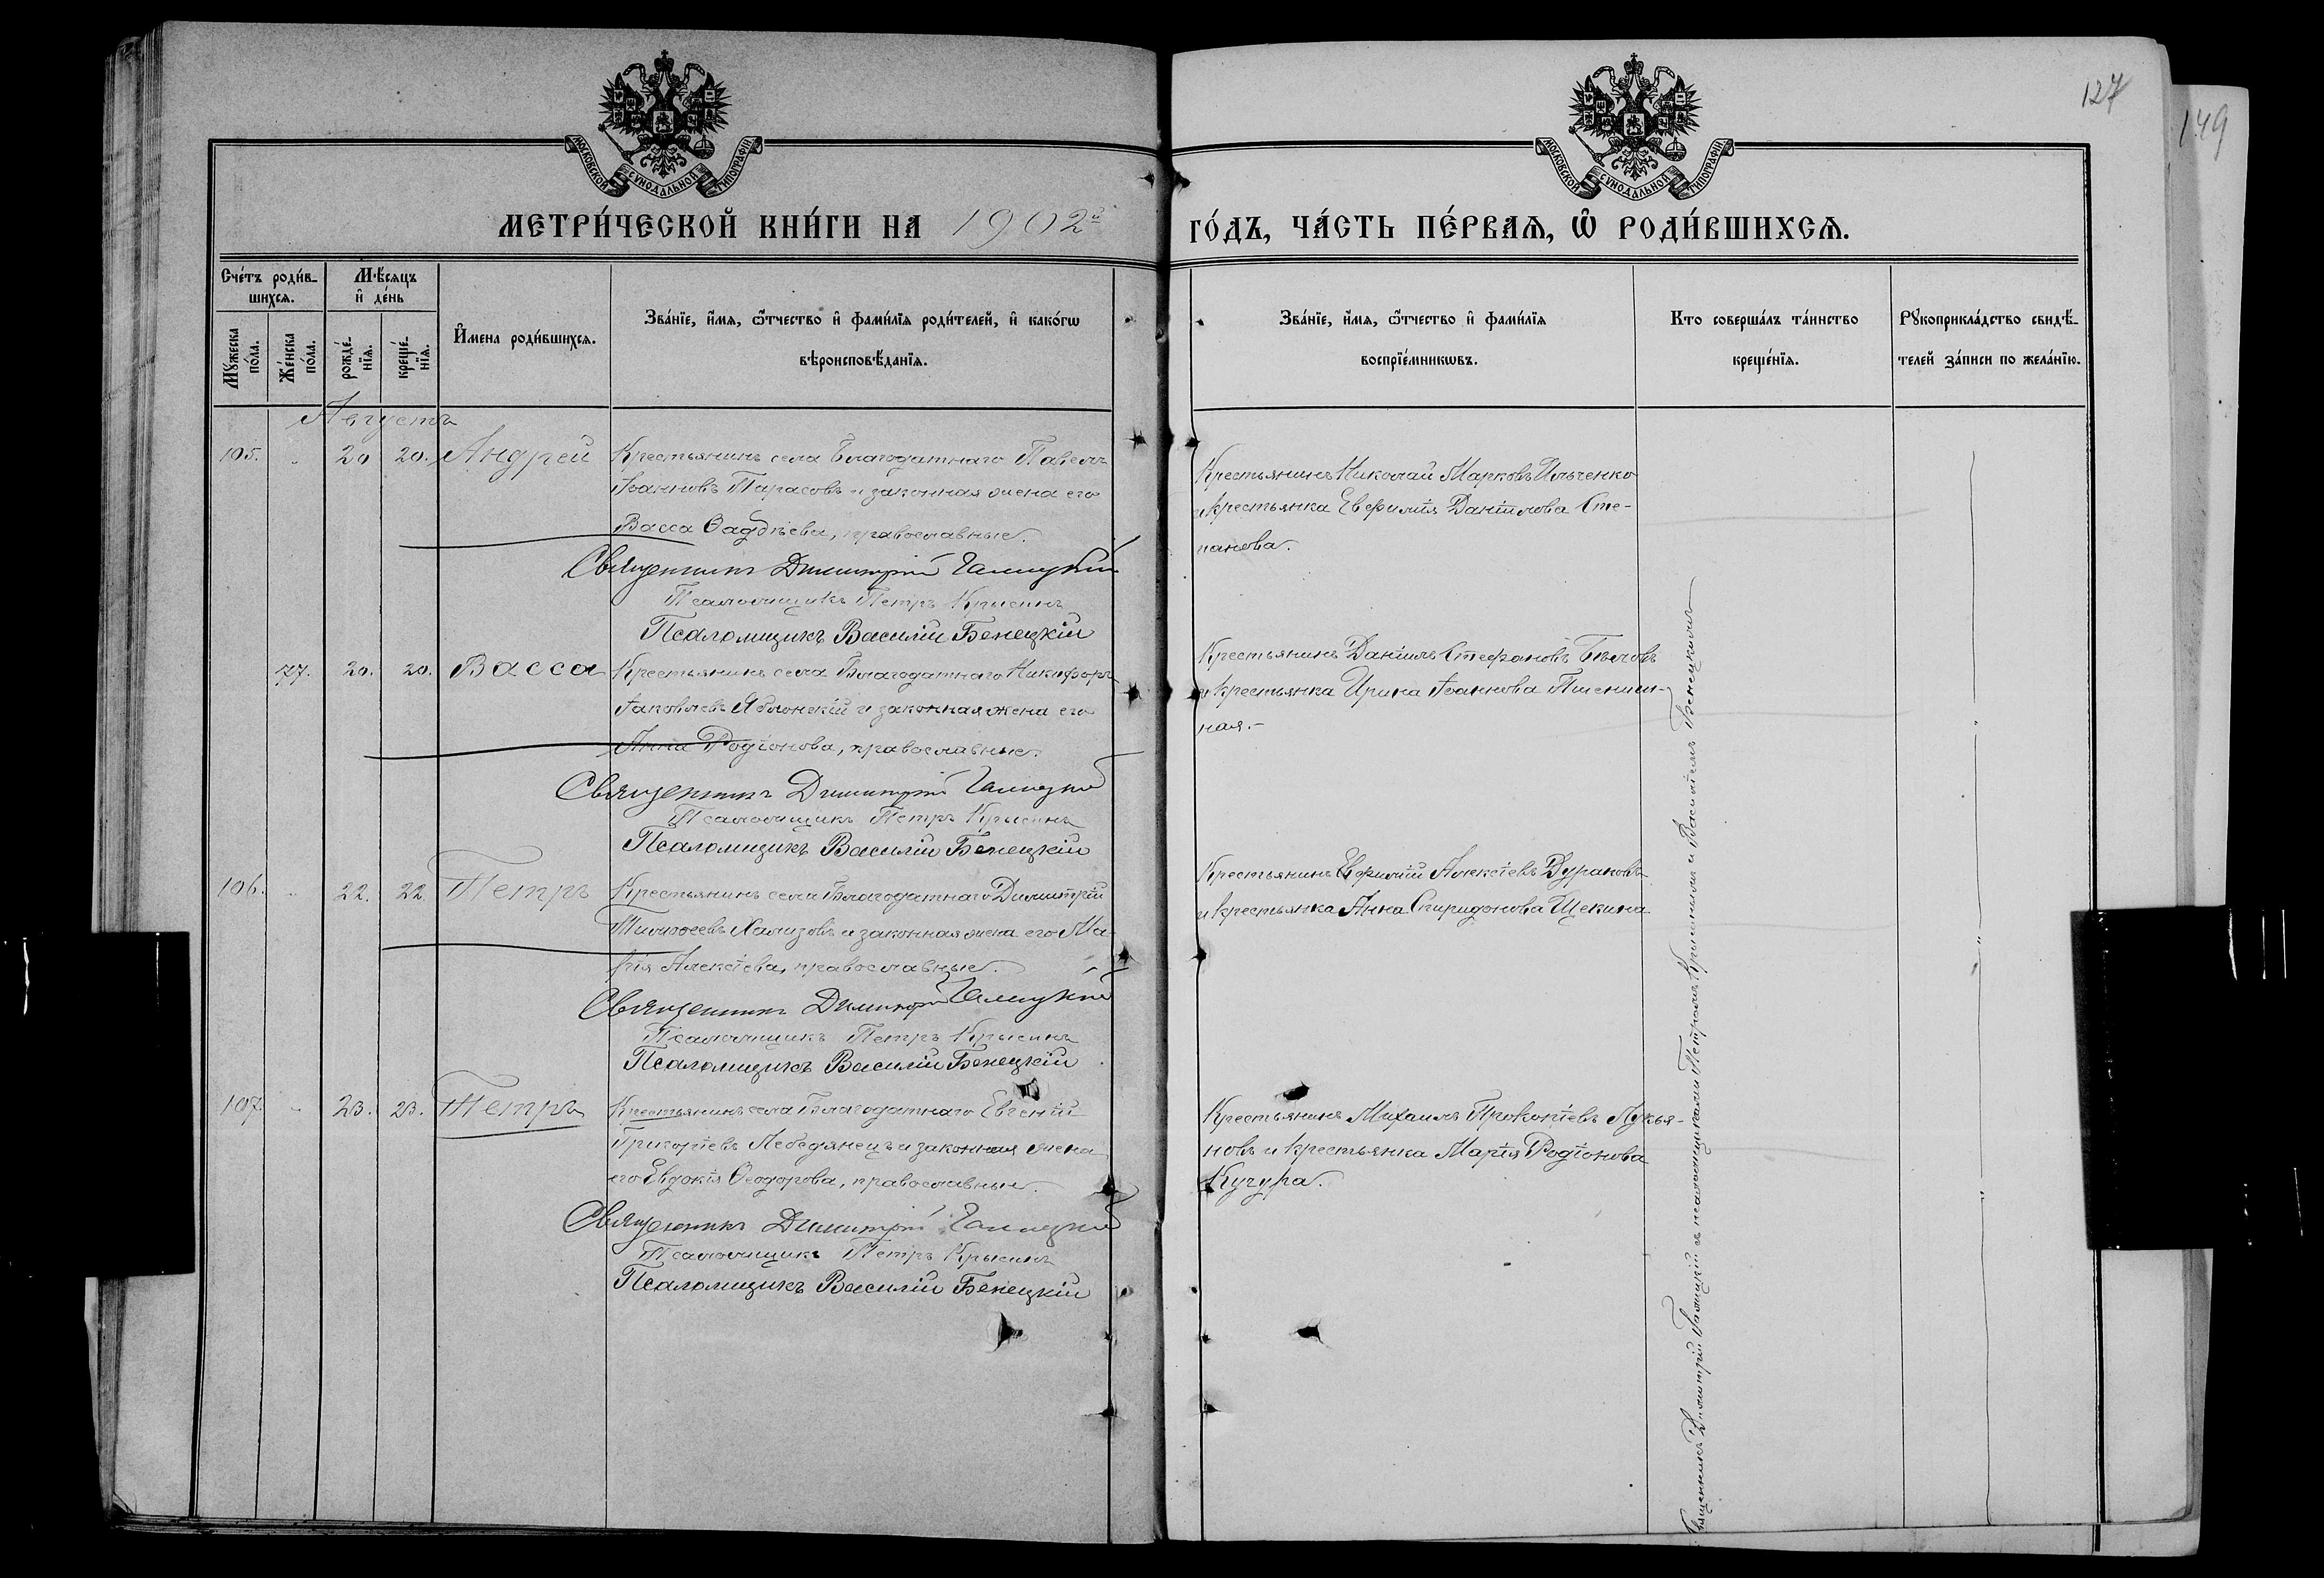 127
149
МОСКОВСКОЙ СѴНОДАЛЬНОЙ ТИПОГРАФІИ
МОСКОВСКОЙ СѴНОДАЛЬНОЙ ТИПОГРАФІИ
МЕТРИ́ЧЕСКОЙ КНИ́ГИ НА 1902й
ГО́ДЪ, ЧА́СТЬ ПЕ́РВАѦ, Ѡ҆ РОДИ́ВШИХСѦ.
Сче́тъ роди́в-
шихсѧ.
Мꙋ́жеска по́ла.
Же́нска по́ла.
М́ѣсѧцъ
и҆ де́нь
рожде́-
нїѧ.
креще́-
нїѧ.
И҆мена роди́вшихсѧ.
Зва́нїе, и҆́мѧ, ѻ҆́тчество и҆ фами́лїѧ роди́телей, и҆ како́гѡ
вѣроисповѣ́данїѧ.
Зва́нїе, и҆́мѧ, ѻ҆́тчество и҆ фами́лїѧ
воспрїе́мникѡвъ.
Кто соверша́лъ та́инство
креще́нїѧ.
Рꙋкоприкла́дство свидѣ́-
телей за́писи по жела́нїю.
Августъ
105. " 20 20. Андрей
Крестьянинъ села Благодатнаго Павелъ
Іоанновъ Тарасовъ и законная жена его
Васса Ѳаддѣева, православные.
Священникъ Димитрій Галицкій
Псаломщикъ Петръ Крысинъ
Псаломщикъ Василій Бенецкій
Крестьянинъ Николай Марковъ Ильченко
и крестьянка Евфимія Даніилова Сте-
панова.
77. 20. 20. Васса
Крестьянинъ села Благодатнаго Никифоръ
Іаковлевъ Яблонскій и законная жена его
Анна Родіонова, православные.
Священникъ Димитрій Галицкій
Псаломщикъ Петръ Крысинъ
Псаломщикъ Василій Бенецкій
Крестьянинъ Даніилъ Стефановъ Бѣловъ
и крестьянка Ирина Іоаннова Пшенич-
ная.-
106. " 22. 22 Петръ
Крестьянинъ села Благодатнаго Димитрій
Тимофеевъ Хализовъ и законная жена его Ма-
рія Алексѣева, православные.
Священникъ Димитрій Галицкій
Псаломщикъ Петръ Крысинъ
Псаломщикъ Василій Бенецкій
Крестьянинъ Евфимій Алексѣевъ Дураковъ
и крестьянка Анна Спиридонова Щекина
107 " 23. 23. Петръ
Крестьянинъ села Благодатнаго Евгеній
Григоріевъ Лебедянецъ и законная жена
его Евдокія Ѳеодорова, православные.
Священникъ Димитрій Галицкій
Псаломщикъ Петръ Крысинъ
Псаломщикъ Василій Бенецкій
Крестьянинъ Михаилъ Прокопіевъ Лукья-
новъ и крестьянка Марія Родіонова
Кучура.
Священникъ Димитрій Галицкій съ псаломщиками Петромъ Крысинымъ и Василіемъ Бенецкимъ